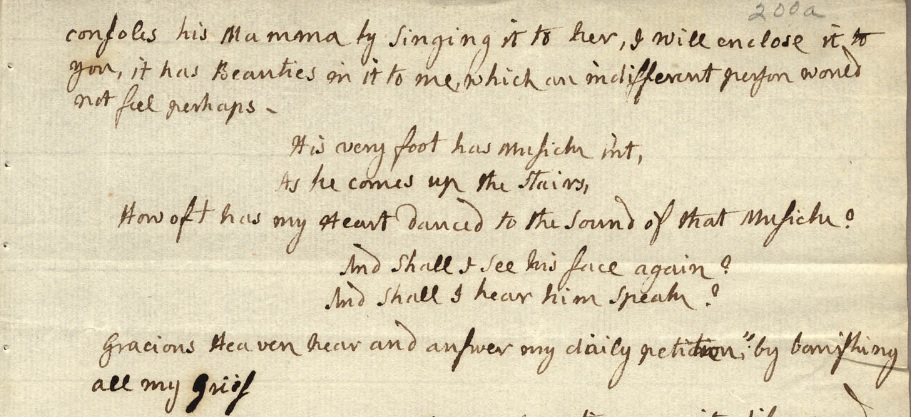 200a
consoles his Mamma by Singing it to her, I will enclose it to
you, it has Beauties in it to me, which an indifferent person woued
not feel perhaps -
His very foot has Musick int,
As he comes up the Stairs,
How oft has my Heart danced to the Sound of that Musick?
And Shall I See his face again?
And Shall I hear him Speak?
Gracious Heaven hear and answer my daily petition, by banishing
all my Grief